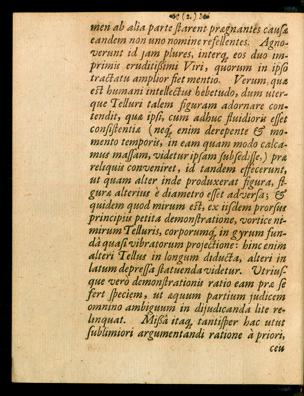 (2.)
men ab alia parte starent prægnantes causæ
eandem non uno nomine refellentes. Agno-
verunt id jam plures, interq́; eos duo im-
primis eruditissimi Viri, quorum in ipso
tractatu amplior fiet mentio. Verum, quæ
est humani intellectus hebetudo, dum uter-
que Telluri talem figuram adornare con-
tendit, quæ ipsi, cum adhuc fluidioris esset
consistentiæ (neq́; enim derepente & mo-
mento temporis, in eam quam modo calca-
mus massam, videtur ipsam subsedisse,) præ
reliquis conveniret, id tandem effecerunt,
ut quam alter inde produxerat figura, fi-
guræ alterius è diametro esset adversa; &
quidem quod mirum est, ex iisdem prorsus
principiis petita demonstratione, vortice ni-
mirum Telluris, corporumq́; in gyrum fun-
dâ quasi vibratorum projectione: hinc enim
alteri Tellus in longum diducta, alteri in
latum depressa statuenda videtur. Utrius-
que verò demonstrationis ratio eam præ se
fert speciem, ut æquum partium judicem
omnino ambiguum in dijudicanda lite re-
linquat. Missâ itaq́; tantisper hac utut
sublimiori argumentandi ratione à priori,
ceu